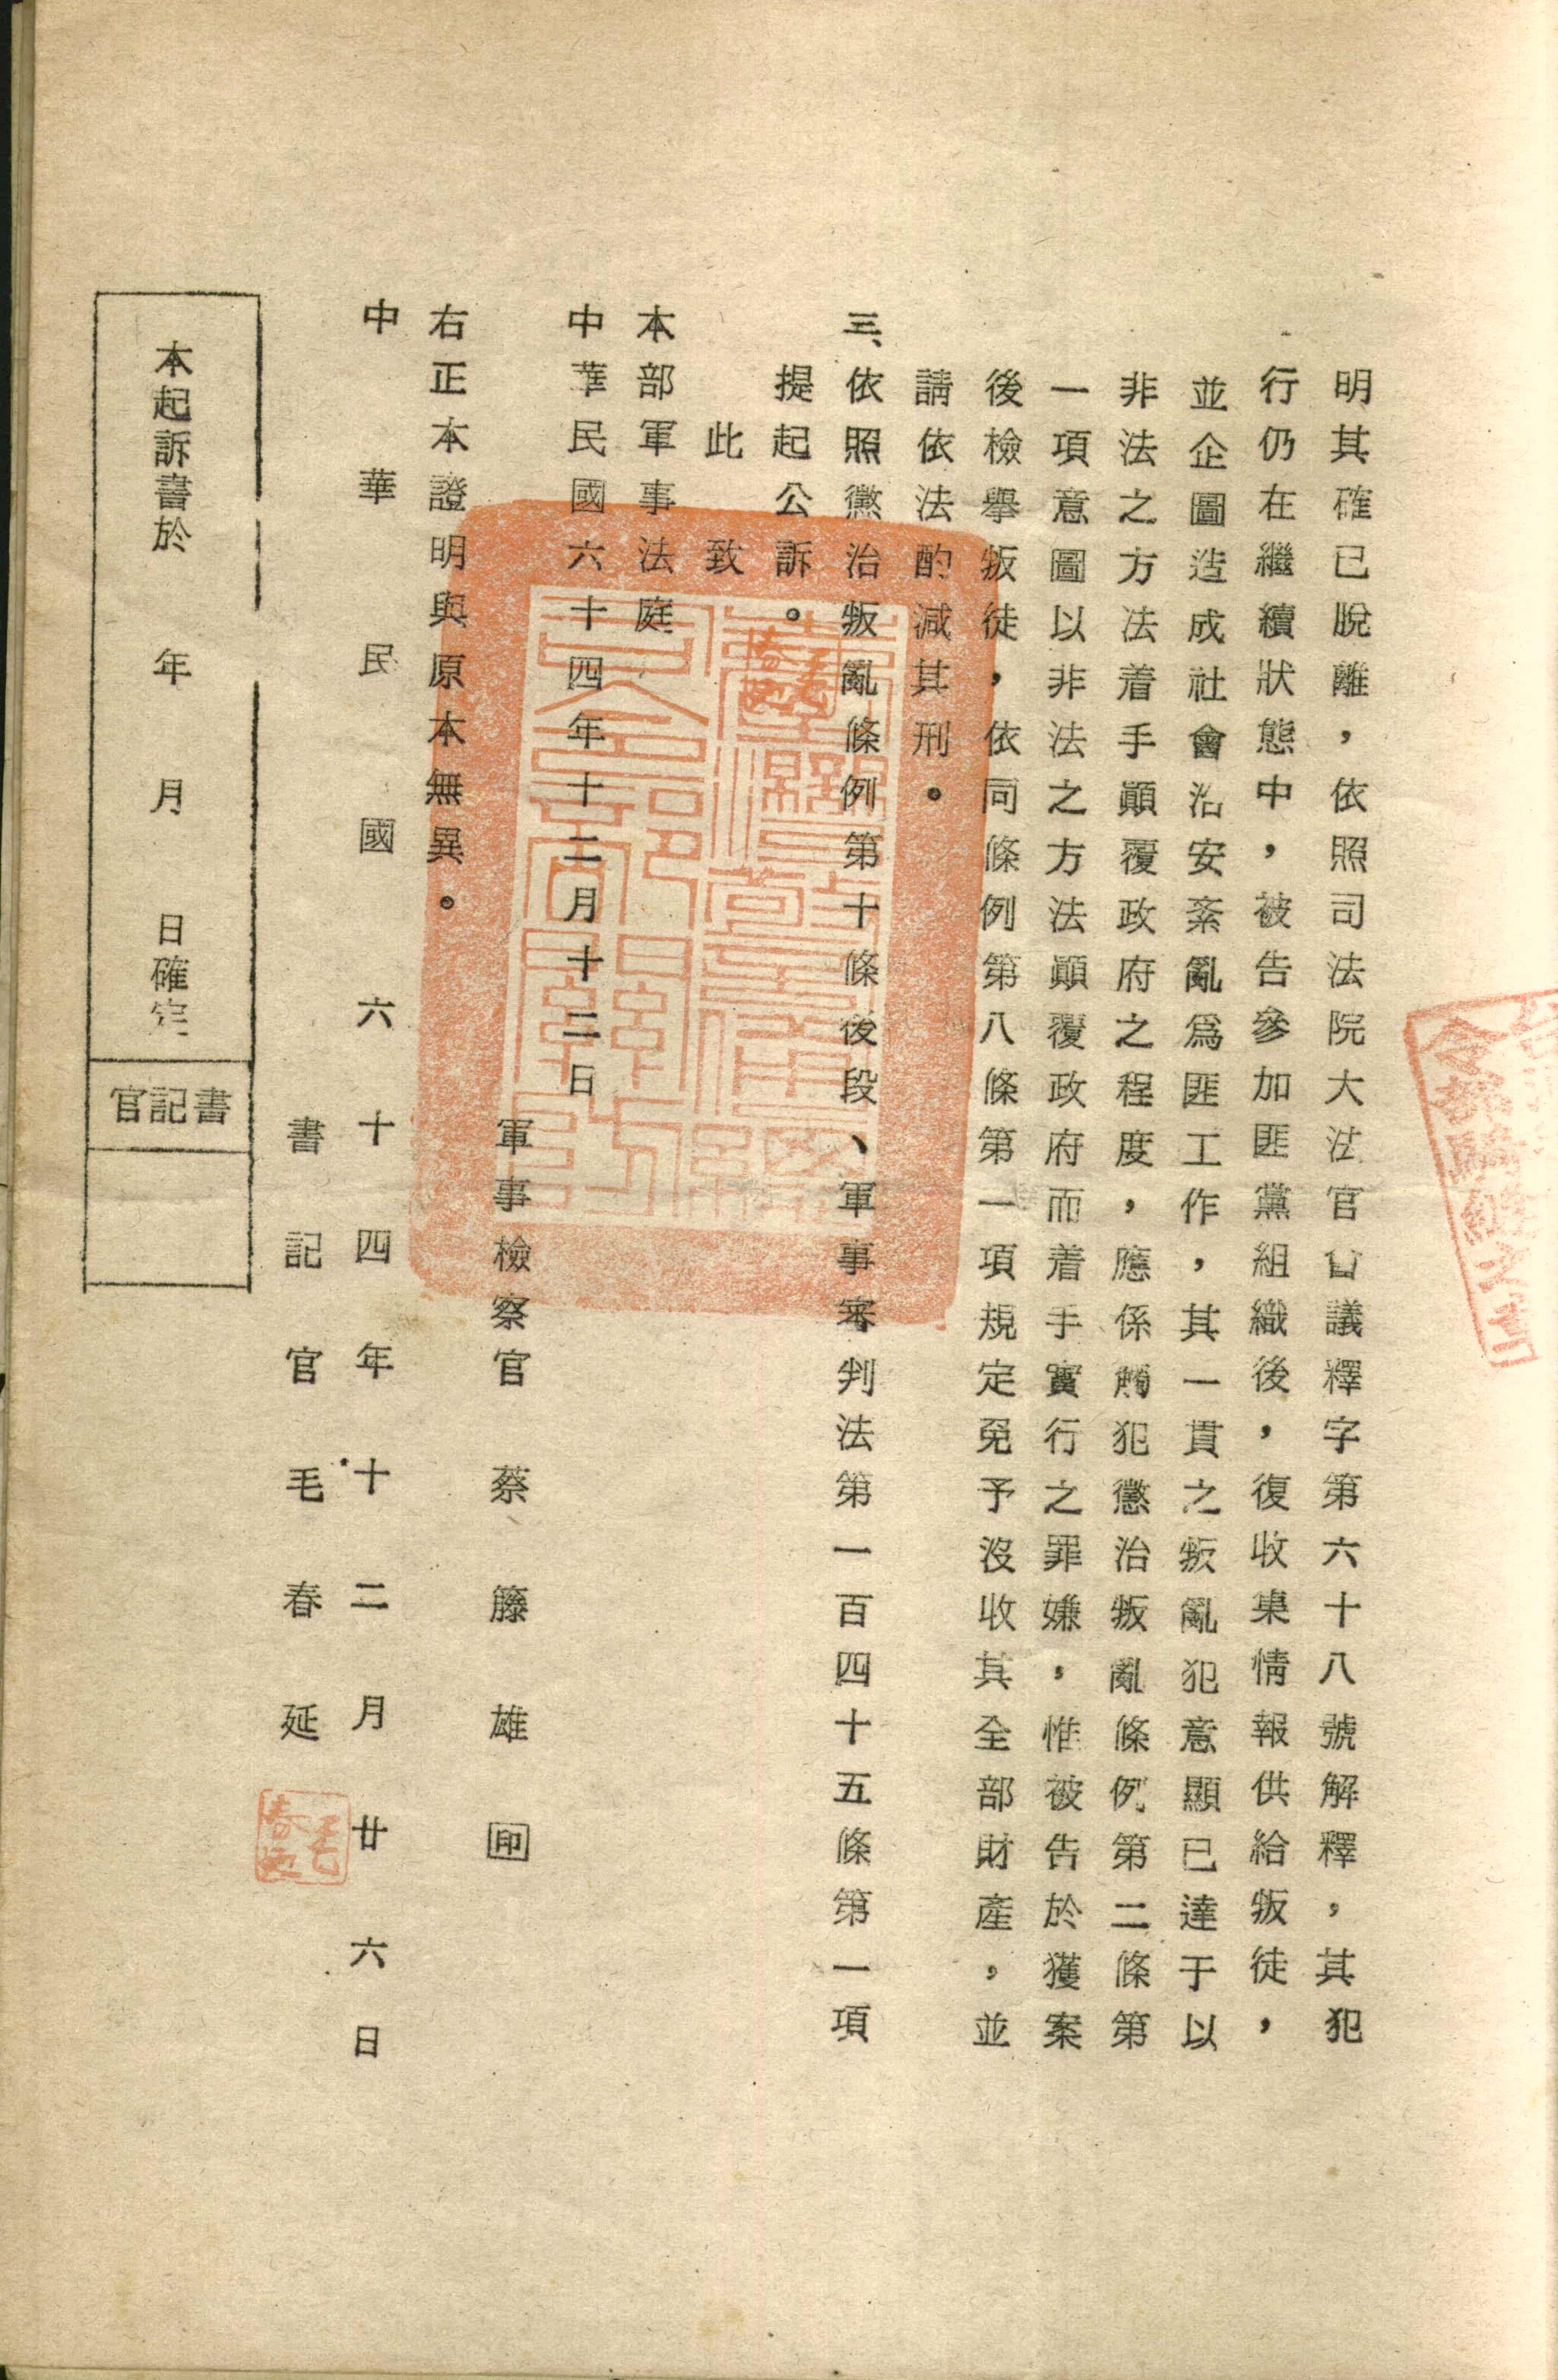 明其確已脫離，依照司法院大法官會議釋字第六十八號解釋，其犯
行仍在繼續狀態中，被告參加匪黨組織後，復收集情報供給叛徒，
並企圖造成社會治安紊亂為匪工作，其一貫之叛亂犯意顯已達于以
非法之方法着手顚覆政府之程度，應係觸犯懲治叛亂條例第二條第
一項意圖以非法之方法顚覆政府而着手實行之罪嫌，惟被告於獲案
後檢舉叛徒，依同條例第八條第一項規定免予沒收其全部財產，並
請依法酌減其刑。
三、依照懲治叛亂條例第十條後段、軍事審判法第一百四十五條第一項
提起公訴。
此致
本部軍事法庭
中華民國六十四年十二月十二日
軍事檢察官 蔡籐雄 印
右正本證明與原本無異。
中華民國六十四年十二月廿六日
書記官 毛春延
毛春延
本起訴書於 年 月 日確定
書記官